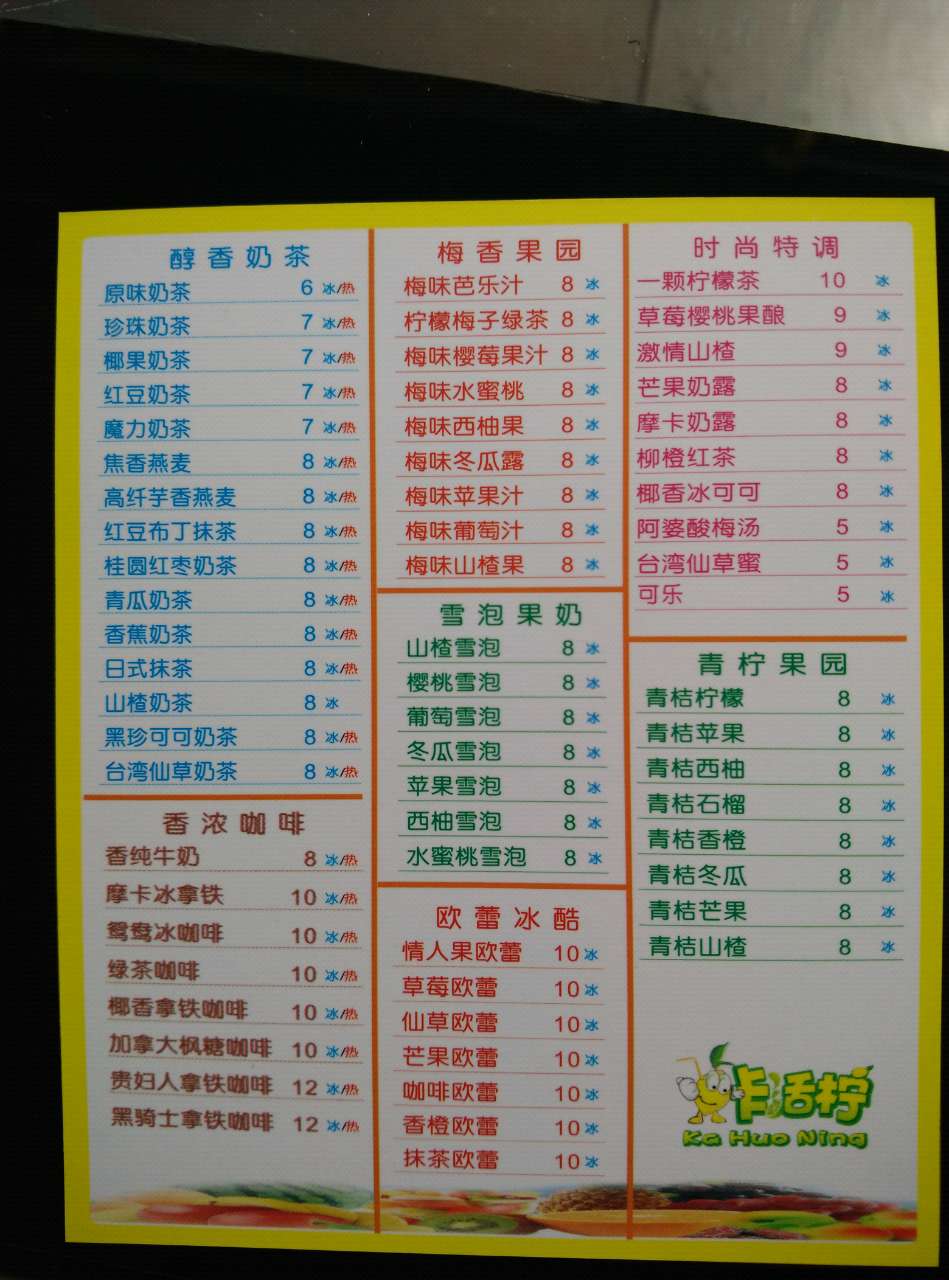 醇香奶茶
原味奶茶 6 冰/热
珍珠奶茶 7 冰/热
椰果奶茶 7 冰/热
红豆奶茶 7 冰/热
魔力奶茶 7 冰/热
焦香燕麦 8 冰/热
高纤芋香燕麦 8 冰/热
红豆布丁抹茶 8 冰/热
桂圆红枣奶茶 8 冰/热
青瓜奶茶 8 冰/热
香蕉奶茶 8 冰/热
日式抹茶 8 冰/热
山楂奶茶 8 冰
黑珍可可奶茶 8 冰/热
台湾仙草奶茶 8 冰/热
香浓咖啡
香纯牛奶 8 冰/热
摩卡冰拿铁 10 冰/热
鸳鸯冰咖啡 10 冰/热
绿茶咖啡 10 冰/热
椰香拿铁咖啡 10 冰/热
加拿大枫糖咖啡 10 冰/热
贵妇人拿铁咖啡 12 冰/热
黑骑士拿铁咖啡 12 冰/热
梅香果园
梅味芭乐汁 8 冰
柠檬梅子绿茶 8 冰
梅味樱莓果汁 8 冰
梅味水蜜桃 8 冰
梅味西柚果 8 冰
梅味冬瓜露 8 冰
梅味苹果汁 8 冰
梅味葡萄汁 8 冰
梅味山楂果 8 冰
雪泡果奶
山楂雪泡 8 冰
樱桃雪泡 8 冰
葡萄雪泡 8 冰
冬瓜雪泡 8 冰
苹果雪泡 8 冰
西柚雪泡 8 冰
水蜜桃雪泡 8 冰
欧蕾冰酷
情人果欧蕾 10 冰
草莓欧蕾 10 冰
仙草欧蕾 10 冰
芒果欧蕾 10 冰
咖啡欧蕾 10 冰
香橙欧蕾 10 冰
抹茶欧蕾 10 冰
时尚特调
一颗柠檬茶 10 冰
草莓樱桃果酿 9 冰
激情山楂 9 冰
芒果奶露 8 冰
摩卡奶露 8 冰
柳橙红茶 8 冰
椰香冰可可 8 冰
阿婆酸梅汤 5 冰
台湾仙草蜜 5 冰
可乐 5 冰
青柠果园
青桔柠檬 8 冰
青桔苹果 8 冰
青桔西柚 8 冰
青桔石榴 8 冰
青桔香橙 8 冰
青桔冬瓜 8 冰
青桔芒果 8 冰
青桔山楂 8 冰
卡活柠
Ka Huo Ning